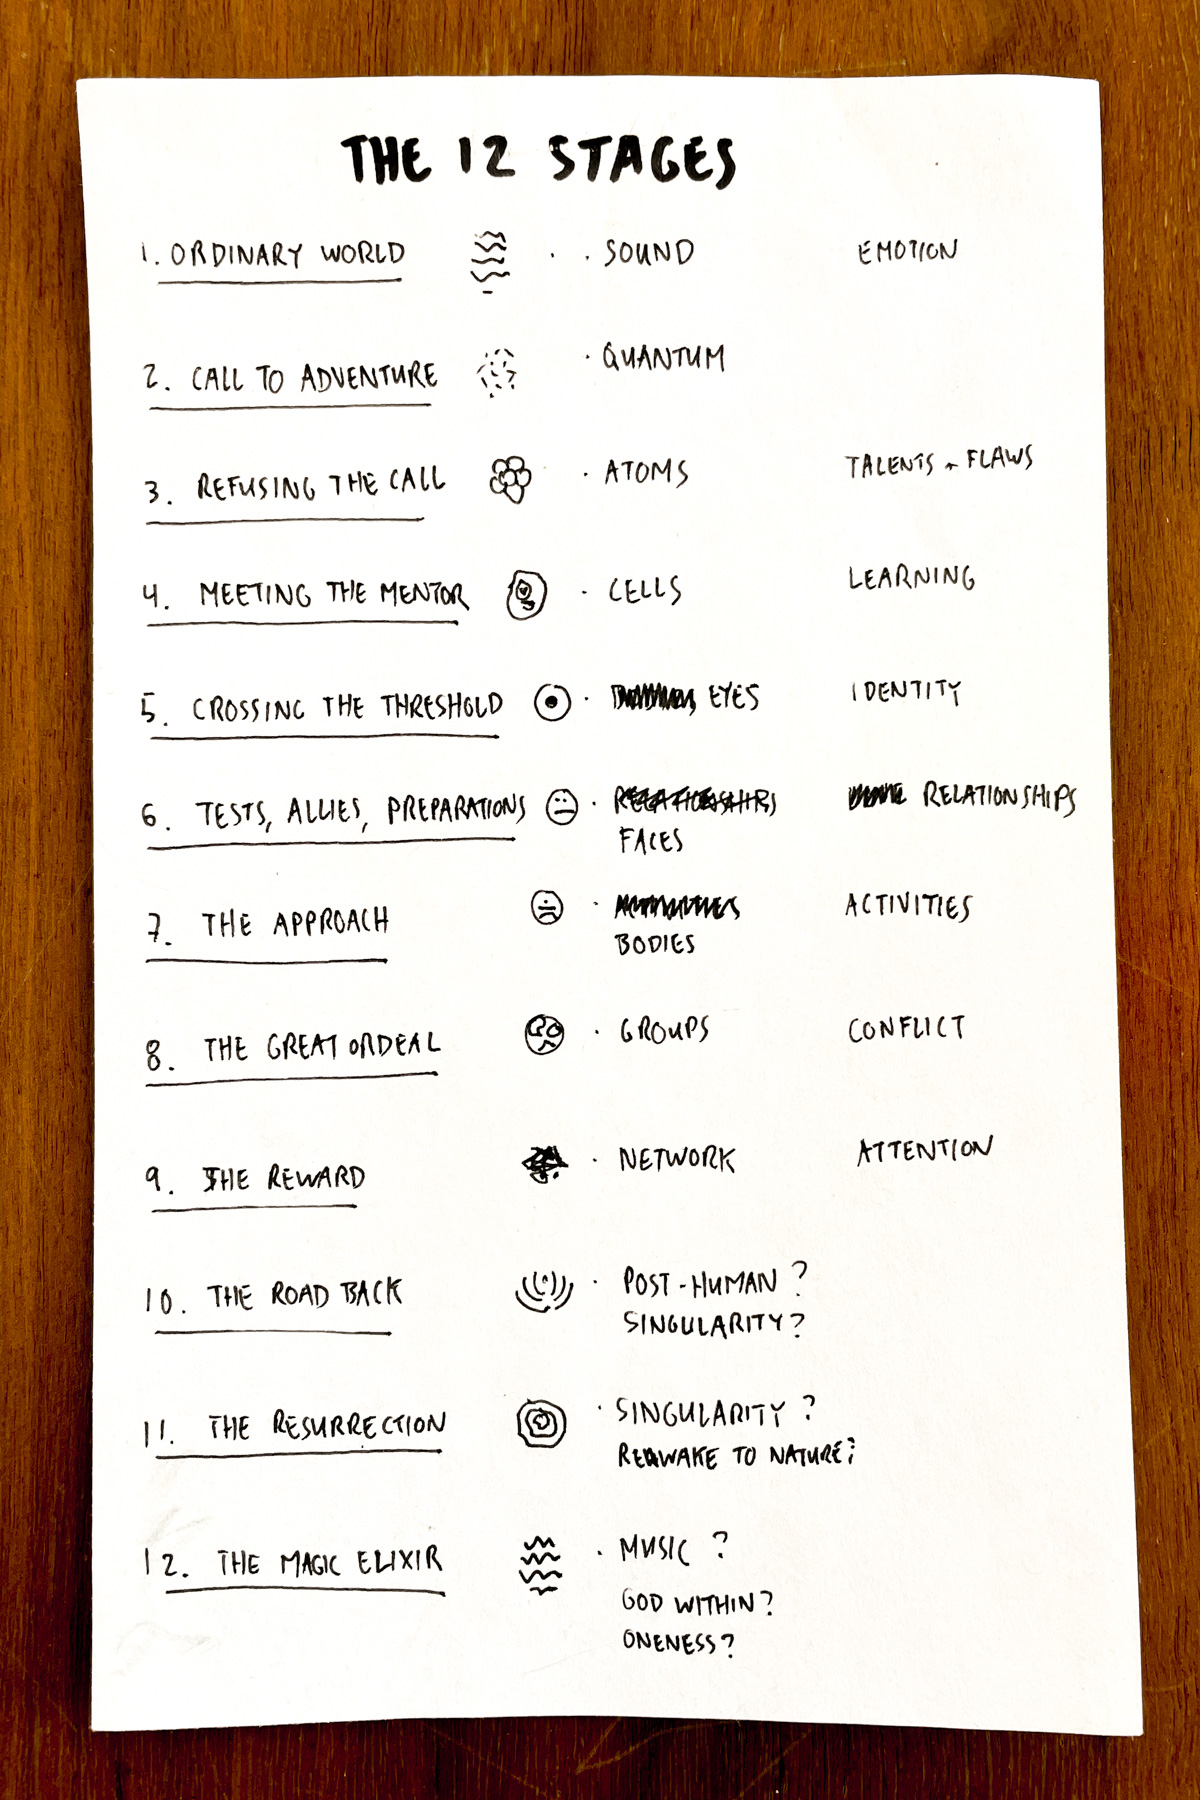 THE 12 STAGES
1. ORDINARY WORLD · · SOUND EMOTION
2. CALL TO ADVENTURE · QUANTUM
3. REFUSING THE CALL · ATOMS TALENTS + FLAWS
4. MEETING THE MENTOR · CELLS LEARNING
5. CROSSING THE THRESHOLD · EYES IDENTITY
6. TESTS, ALLIES, PREPARATIONS · RELATIONSHIPS RELATIONSHIPS
FACES
7. THE APPROACH · ACTIVITIES ACTIVITIES
BODIES
8. THE GREAT ORDEAL · GROUPS CONFLICT
9. THE REWARD · NETWORK ATTENTION
10. THE ROAD BACK · POST-HUMAN ?
SINGULARITY?
11. THE RESURRECTION · SINGULARITY ?
REAWAKE TO NATURE?
12. THE MAGIC ELIXIR · MUSIC ?
GOD WITHIN?
ONENESS?